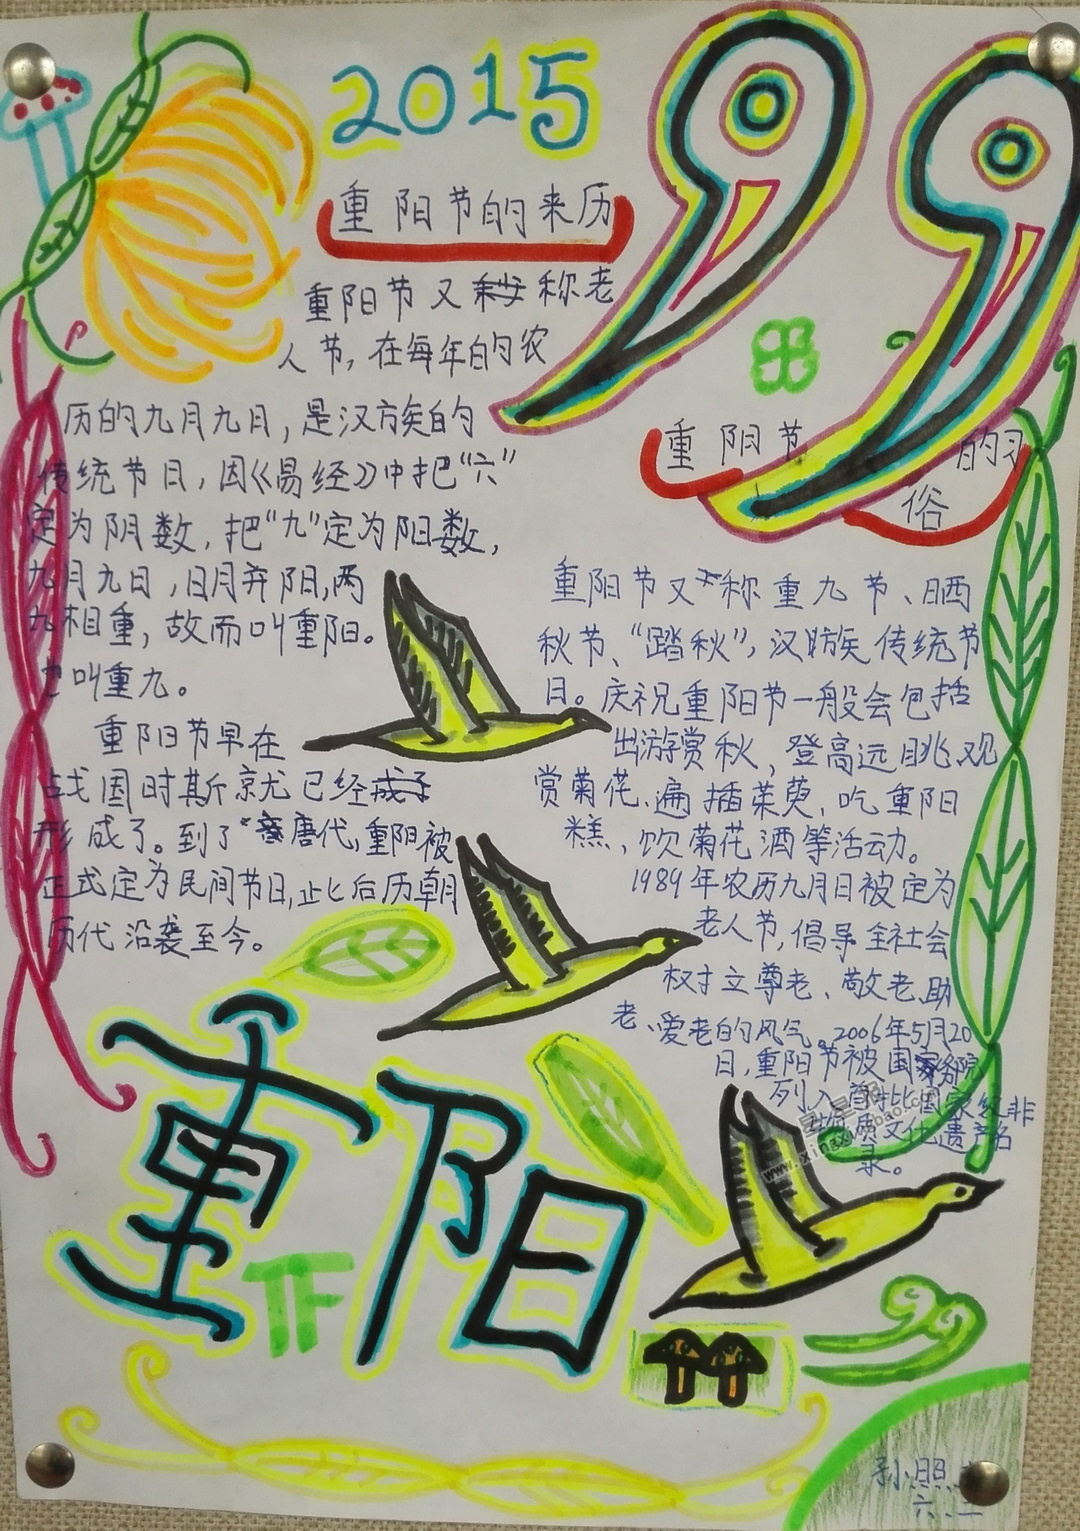 2015
重阳节的来历
重阳节又称老
人节,在每年的农
历的九月九日,是汉族的
传统节日,因《易经》中把“六”
定为阴数,把“九”定为阳数,
九月九日,日月并阳,两
九相重,故而叫重阳。
也叫重九。
重阳节早在
战国时期就已经
形成了。到了唐代,重阳被
正式定为民间节日,此后历朝
历代沿袭至今。
99
重阳节的习
俗
重阳节又称重九节、晒
秋节、“踏秋”,汉族传统节
日。庆祝重阳节一般会包括
出游赏秋,登高远眺,观
赏菊花、遍插茱萸、吃重阳
糕、饮菊花酒等活动。
1989年农历九月日被定为
老人节,倡导全社会
树立尊老、敬老、助
老、爱老的风气。2006年5月20
日,重阳节被国务院
列入首批国家级非
物质文化遗产名
录。
重阳
节
孙照
六.二